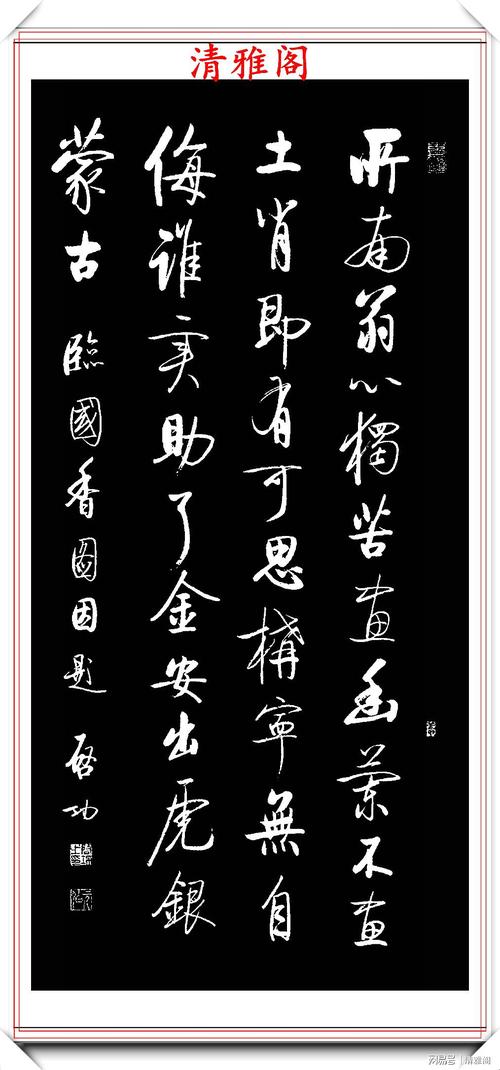 清雅阁
所南翁心獨苦畫幽蘭不畫
土肖即有可思構寧無自
侮誰实助了金安出虎銀
蒙古 臨國香圖因題 啓功
网易号 | 清雅阁